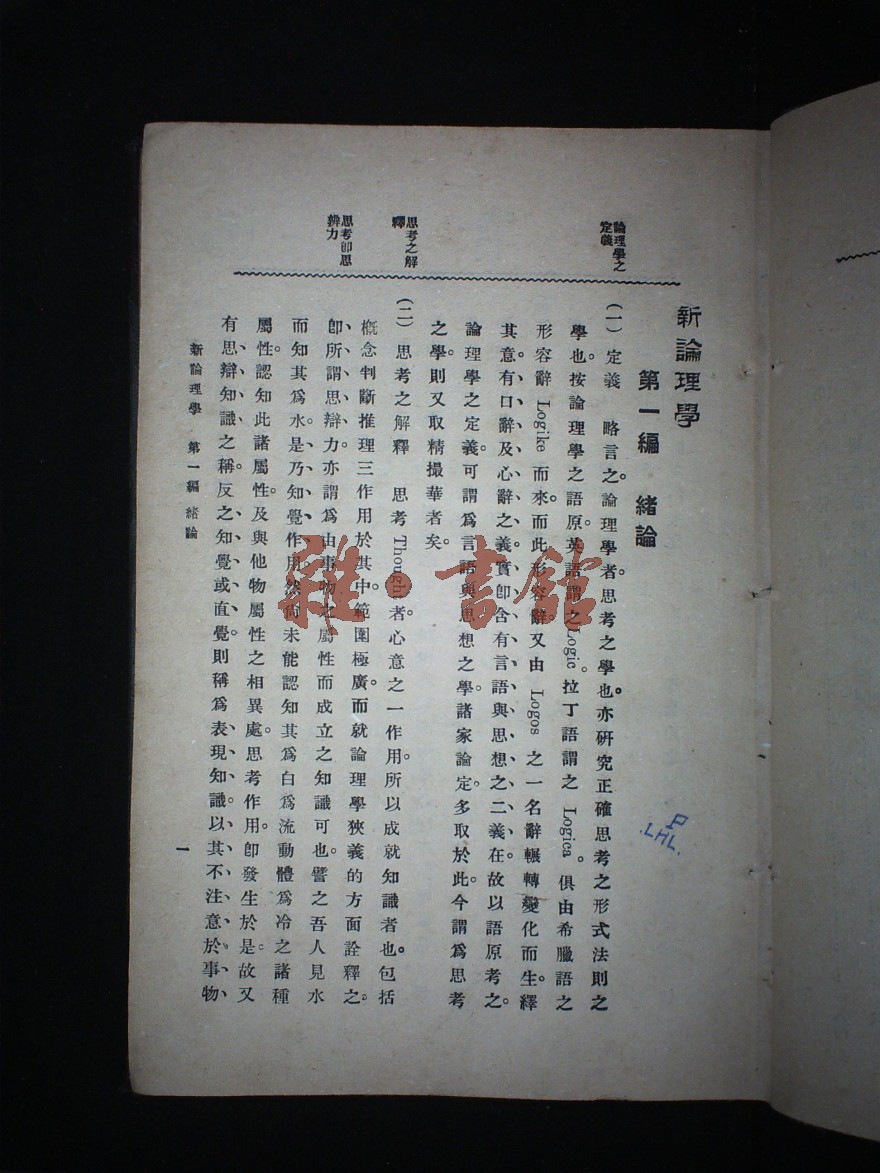 新論理學
第一編 緒論
論理學之
定義
(一) 定義 略言之。論理學者。思考之學也。亦硏究正確思考之形式法則之
學也。按論理學之語原。英語謂之Logic。拉丁語謂之 Logica。俱由希臘語之
形容辭 Logike 而來。而此形容辭。又由 Logos 之一名辭輾轉變化而生。繹
其意。有口辭及心辭之義。實卽含有言語與思想之二義在。故以語原考之。
論理學之定義。可謂爲言語與思想之學。諸家論定。多取於此。今謂爲思考
之學。則又取精撮華者矣。
思考之解
釋
(二) 思考之解釋 思考Thought者。心意之一作用。所以成就知識者也。包括
概念判斷推理三作用於其中。範圍極廣。而就論理學狹義的方面詮釋之。
思考卽思
辨力
卽所謂思辯力。亦謂爲由事物之屬性而成立之知識可也。譬之吾人見水
而知其爲水。是乃知覺作用。然尙未能認知其爲白爲流動體爲冷之諸種
屬性。認知此諸屬性。及與他物屬性之相異處。思考作用。卽發生於是。故又
有思辯知識之稱。反之知覺或直覺。則稱爲表現知識。以其不注意於事物
新論理學 第一編 緒論
一
P
LHL.
雜·書館